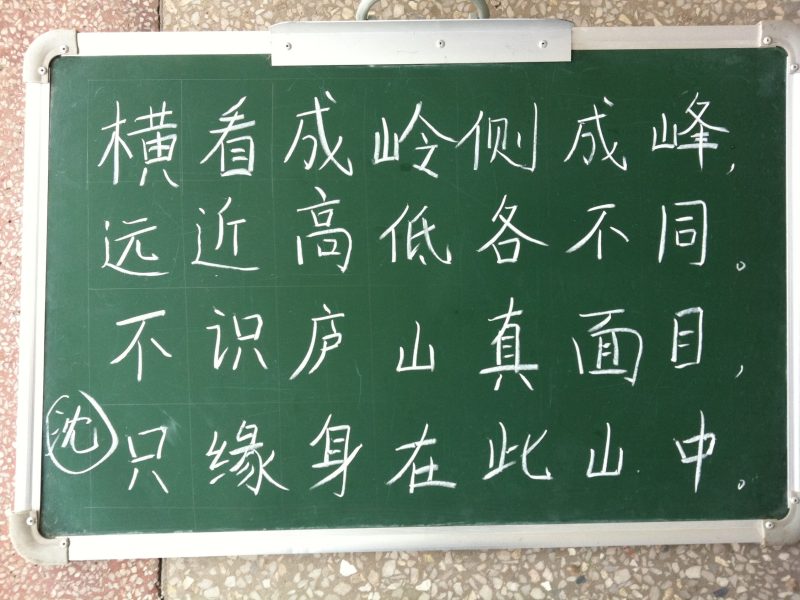 横看成岭侧成峰,
远近高低各不同。
不识庐山真面目,
只缘身在此山中。
沈